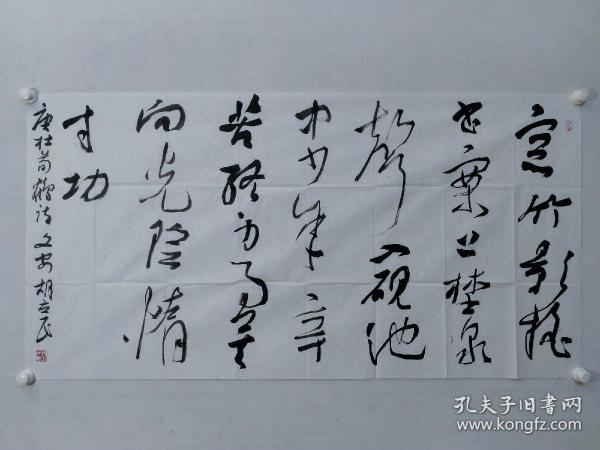 窗竹影摇
书案上埜泉
声入砚池
中少年辛
苦终身事莫
向光阴惰
寸功
唐杜荀鹤诗 文安 胡立民
孔夫子旧书网
www.kongfz.com